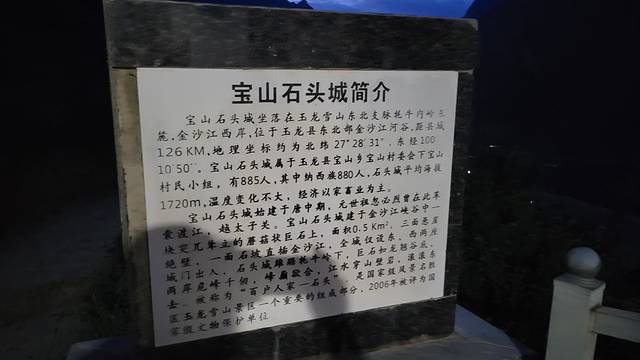 宝山石头城简介
宝山石头城坐落在玉龙雪山东北支脉牦牛内岭东
麓,金沙江西岸,位于玉龙县东北部金沙江河谷,距县城
126KM,地理坐标约为北纬27°28′31″,东经100°
10′50″。宝山石头城属于玉龙县宝山乡宝山村委会下宝山
村民小组,有885人,其中纳西族880人,石头城平均海拔
1720m,温度变化不大,经济以家畜业为主。
宝山石头城始建于唐中期,元世祖忽必烈曾在此革
囊渡江,越太子关。宝山石头城建于金沙江峡谷中一
块突兀牟主的蘑菇状巨石上,面积0.5Km²,三面悬崖
绝壁,一面石坡直插金沙江,全城仅设东、西两座
城门出入,石头城雄踞牦牛岭下,巨石如龙翘谷底,
两岸危峰千仞,峰巅欲合,江水穿山壁岩,滚滚东
去。被称为“百户人家一石头”,是国家级风景名胜
区玉龙雪山景区一个重要的组成部分,2006年被评为国
家级文物保护单位